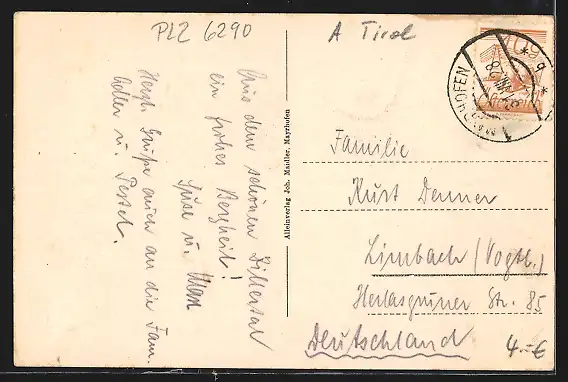 PLZ 6290
A Tirol
Aus dem schönen Zillertal
ein frohes Bergheil!
u.
Herzl. Grüße auch an die Fam.
u.
Alleinverlag Joh. Maidler, Mayrhofen
Familie
Kurt Denner
Limbach/Vogtl.)
Herlasgrüner Str. 85
Deutschland
4.-€